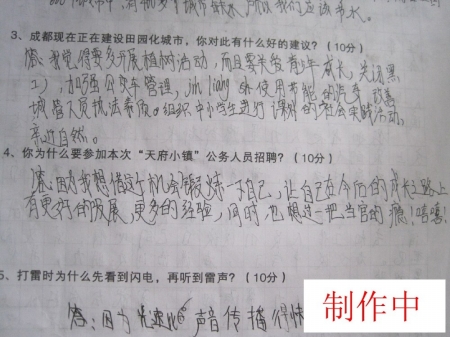 3、成都现在正在建设田园化城市，你对此有什么好的建议？（10分）
答：我觉得要多开展植树活动，而且要关爱青少年成长，关闭黑
口），加强公交车管理，jin liang 少使用节能的汽车，改善
城管人员执法素质。组织中小学生进行课外的社会实践活动，
亲近自然。
4、你为什么要参加本次“天府小镇”公务人员招聘？（10分）
答：因为我想借这个机会锻炼一下自己，让自己在今后的成长之路上
有更好的发展，更多的经验，同时也想过一把当官的瘾！嘻嘻！
5、打雷时为什么先看到闪电，再听到雷声？（10分）
答：因为光速比声音传播得快
制作中